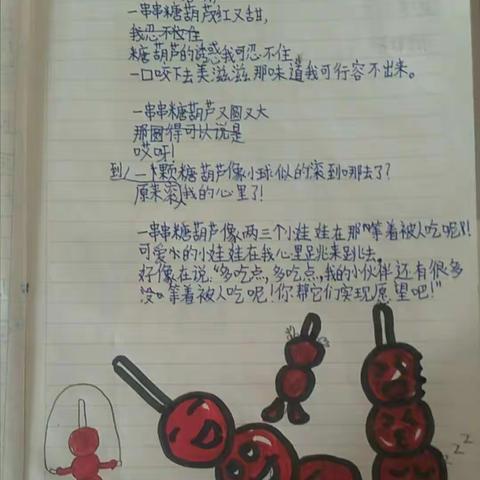 一串串糖葫芦红又甜,
我忍不住
糖葫芦的诱惑我可忍不住。
一口咬下去美滋滋,那味道我可行容不出来。
一串串糖葫芦又圆又大
那圆得可以说是
哎呀!
到一颗糖葫芦像小球似的滚到哪去了?
原来滚我的心里了!
一串串糖葫芦像两三个小娃娃在那"等着被人吃呢"!
可爱的小娃娃在我心里跳来跳去
好像在说:"多吃点,多吃点,我的小伙伴还有很多
没"等着被人吃呢!你帮它们实现愿望吧!"
z z z